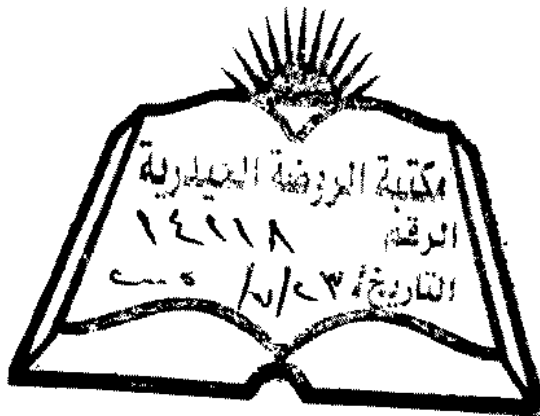 مكتبة الروضة الحيدرية
الرقم ١٤٢١٨
التاريخ